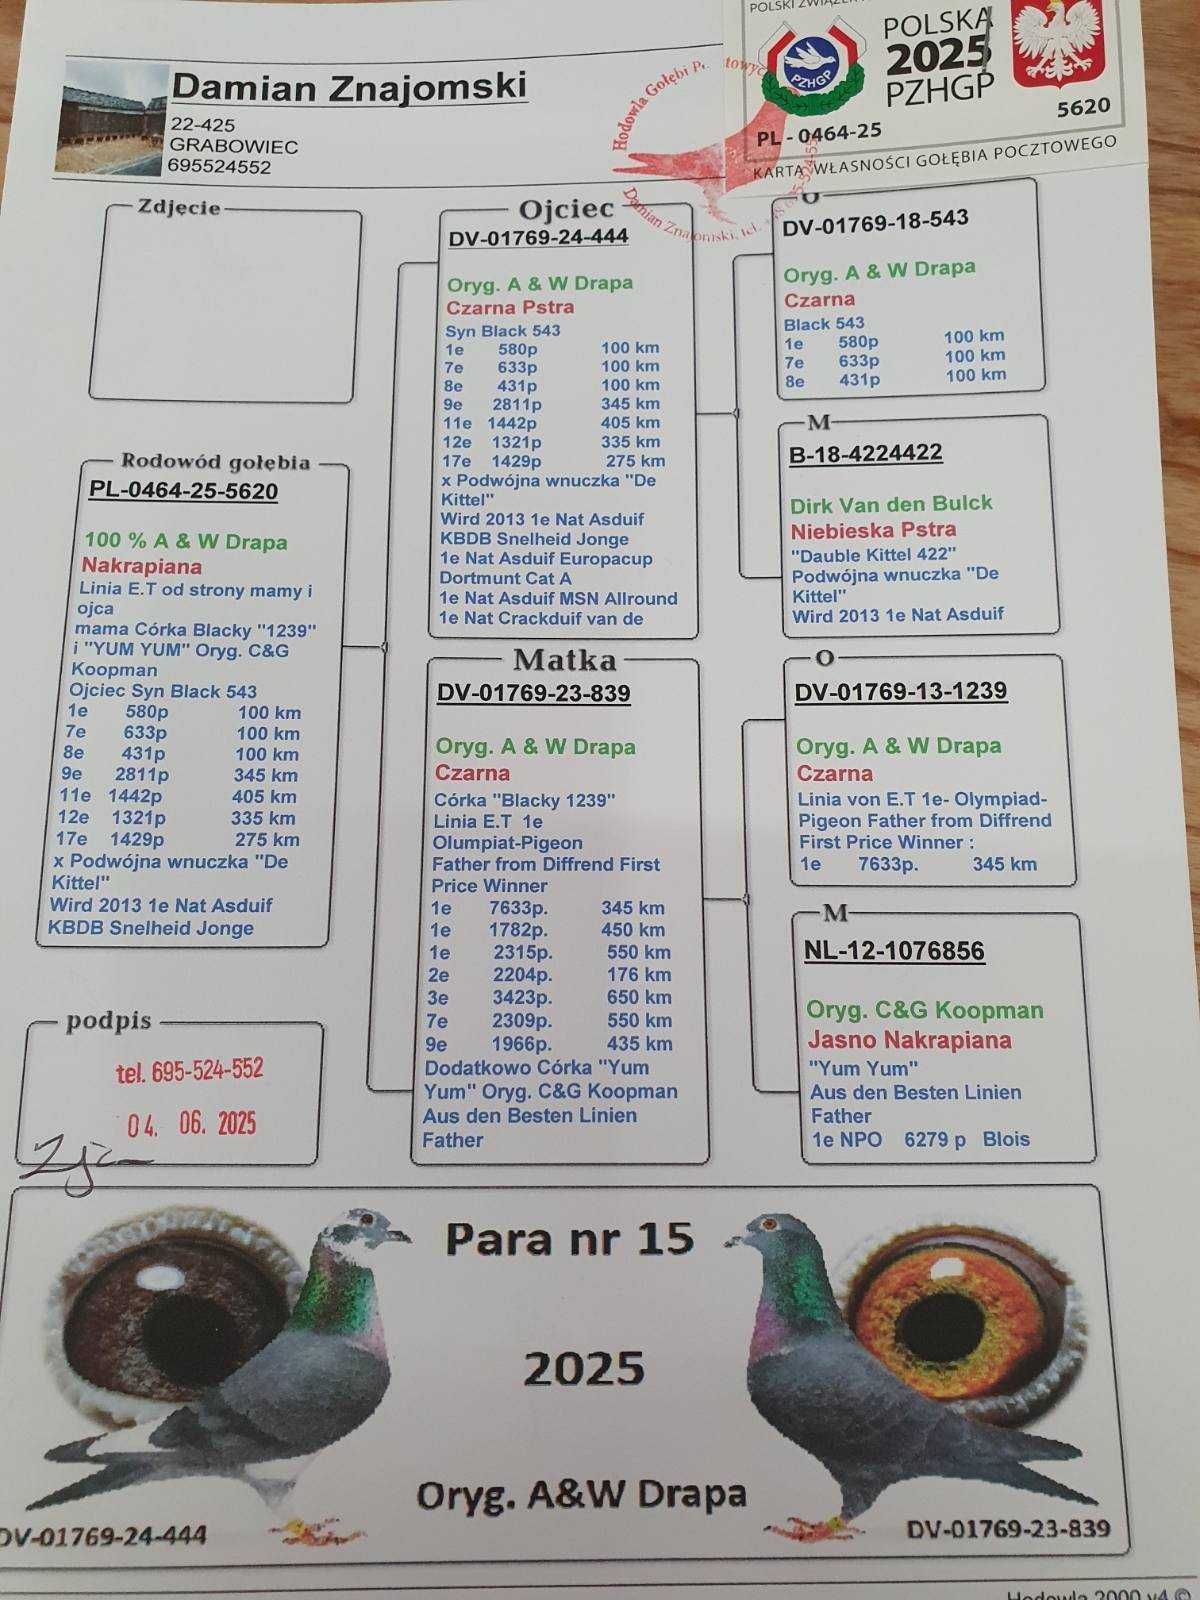 Damian Znajomski
22-425
GRABOWIEC
695524552
Hodowla Gołębi
Damian Znajomski, tel.
POLSKA
2025
PZHGP
PZHGP
5620
PL - 0464-25
KARTA WŁASNOŚCI GOŁĘBIA POCZTOWEGO
Zdjęcie
Rodowód gołębia
PL-0464-25-5620
100 % A & W Drapa
Nakrapiana
Linia E.T od strony mamy i
ojca
mama Córka Blacky "1239"
i "YUM YUM" Oryg. C&G
Koopman
Ojciec Syn Black 543
1e 580p 100 km
7e 633p 100 km
8e 431p 100 km
9e 2811p 345 km
11e 1442p 405 km
12e 1321p 335 km
17e 1429p 275 km
x Podwójna wnuczka "De
Kittel"
Wird 2013 1e Nat Asduif
KBDB Snelheid Jonge
podpis
tel. 695-524-552
04. 06. 2025
Ojciec
DV-01769-24-444
Oryg. A & W Drapa
Czarna Pstra
Syn Black 543
1e 580p 100 km
7e 633p 100 km
8e 431p 100 km
9e 2811p 345 km
11e 1442p 405 km
12e 1321p 335 km
17e 1429p 275 km
x Podwójna wnuczka "De
Kittel"
Wird 2013 1e Nat Asduif
KBDB Snelheid Jonge
1e Nat Asduif Europacup
Dortmunt Cat A
1e Nat Asduif MSN Allround
1e Nat Crackduif van de
Matka
DV-01769-23-839
Oryg. A & W Drapa
Czarna
Córka "Blacky 1239"
Linia E.T 1e
Olumpiat-Pigeon
Father from Diffrend First
Price Winner
1e 7633p. 345 km
1e 1782p. 450 km
1e 2315p. 550 km
2e 2204p. 176 km
3e 3423p. 650 km
7e 2309p. 550 km
9e 1966p. 435 km
Dodatkowo Córka "Yum
Yum" Oryg. C&G Koopman
Aus den Besten Linien
Father
O
DV-01769-18-543
Oryg. A & W Drapa
Czarna
Black 543
1e 580p 100 km
7e 633p 100 km
8e 431p 100 km
M
B-18-4224422
Dirk Van den Bulck
Niebieska Pstra
"Dauble Kittel 422"
Podwójna wnuczka "De
Kittel"
Wird 2013 1e Nat Asduif
O
DV-01769-13-1239
Oryg. A & W Drapa
Czarna
Linia von E.T 1e- Olympiad-
Pigeon Father from Diffrend
First Price Winner :
1e 7633p. 345 km
M
NL-12-1076856
Oryg. C&G Koopman
Jasno Nakrapiana
"Yum Yum"
Aus den Besten Linien
Father
1e NPO 6279 p Blois
Para nr 15
2025
Oryg. A&W Drapa
DV-01769-24-444
DV-01769-23-839
Hodowla 2000 v4 ©